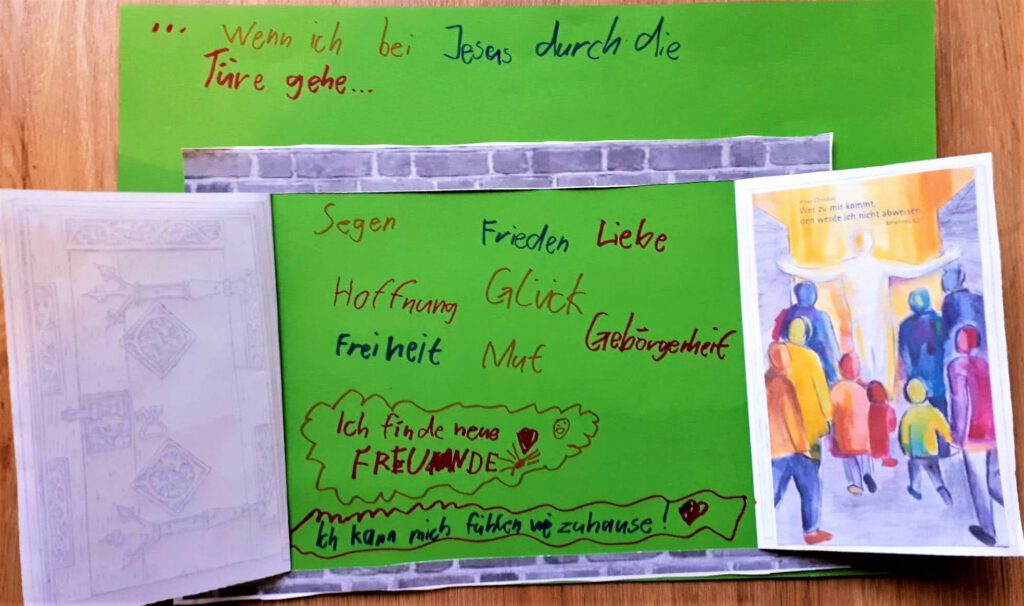 ... Wenn ich bei Jesus durch die
Türe gehe...
Segen
Frieden Liebe
Hoffnung Glück
Freiheit Mut Gebörgenheit
Ich finde neue
FREUNDE
Ich kann mich fühlen wie zuhause!
Christus:
Wer zu mir kommt,
den werde ich nicht abweisen.
Johannes